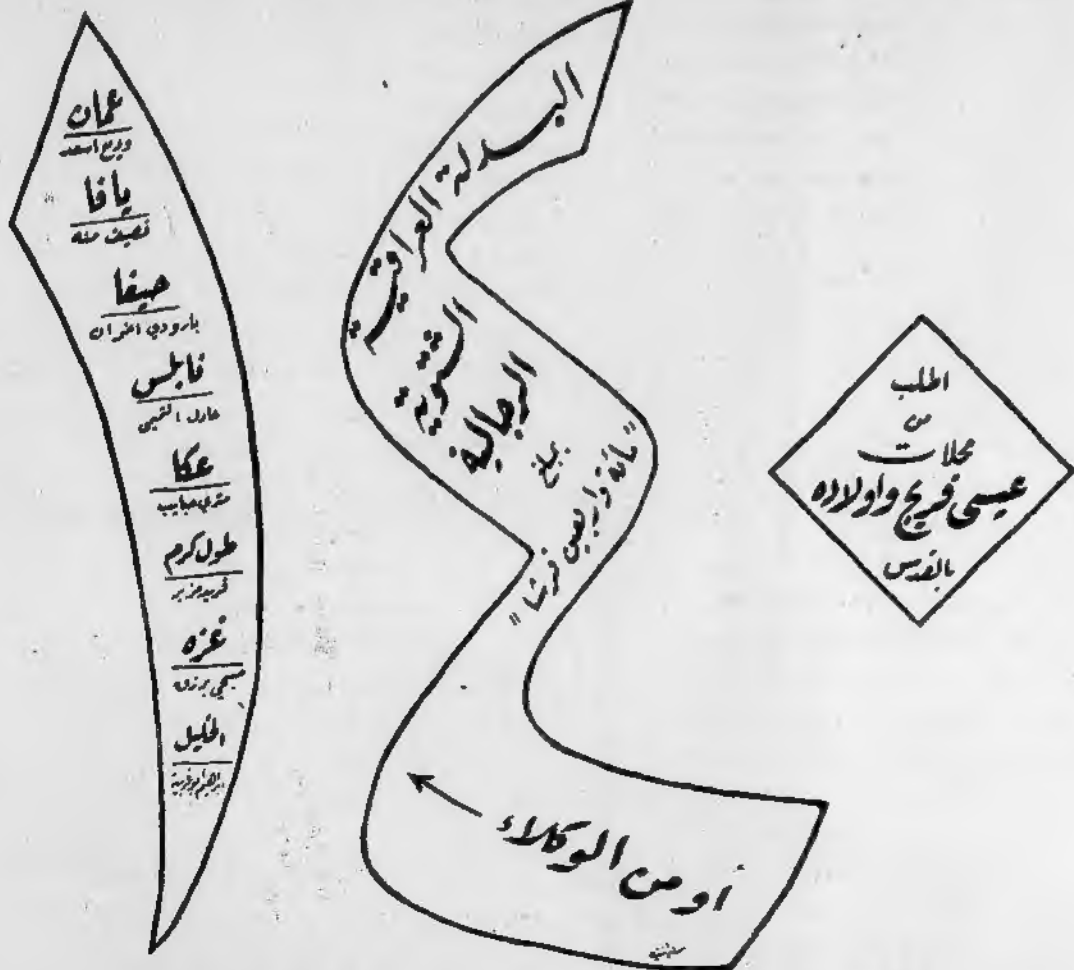 اطلب
من
محلات
عيسى فريج واولاده
بالقدس
البدلة العراقية
الشتوية
الرجالية
بمبلغ
"مائة واربعين قرشا"
أو من الوكلاء
عمان
وديع اسعد
يافا
نصيف منه
حيفا
بارودي اخوان
نابلس
عادل
عكا
حبايب
طول كرم
فريد
غزه
صبحي
الخليل